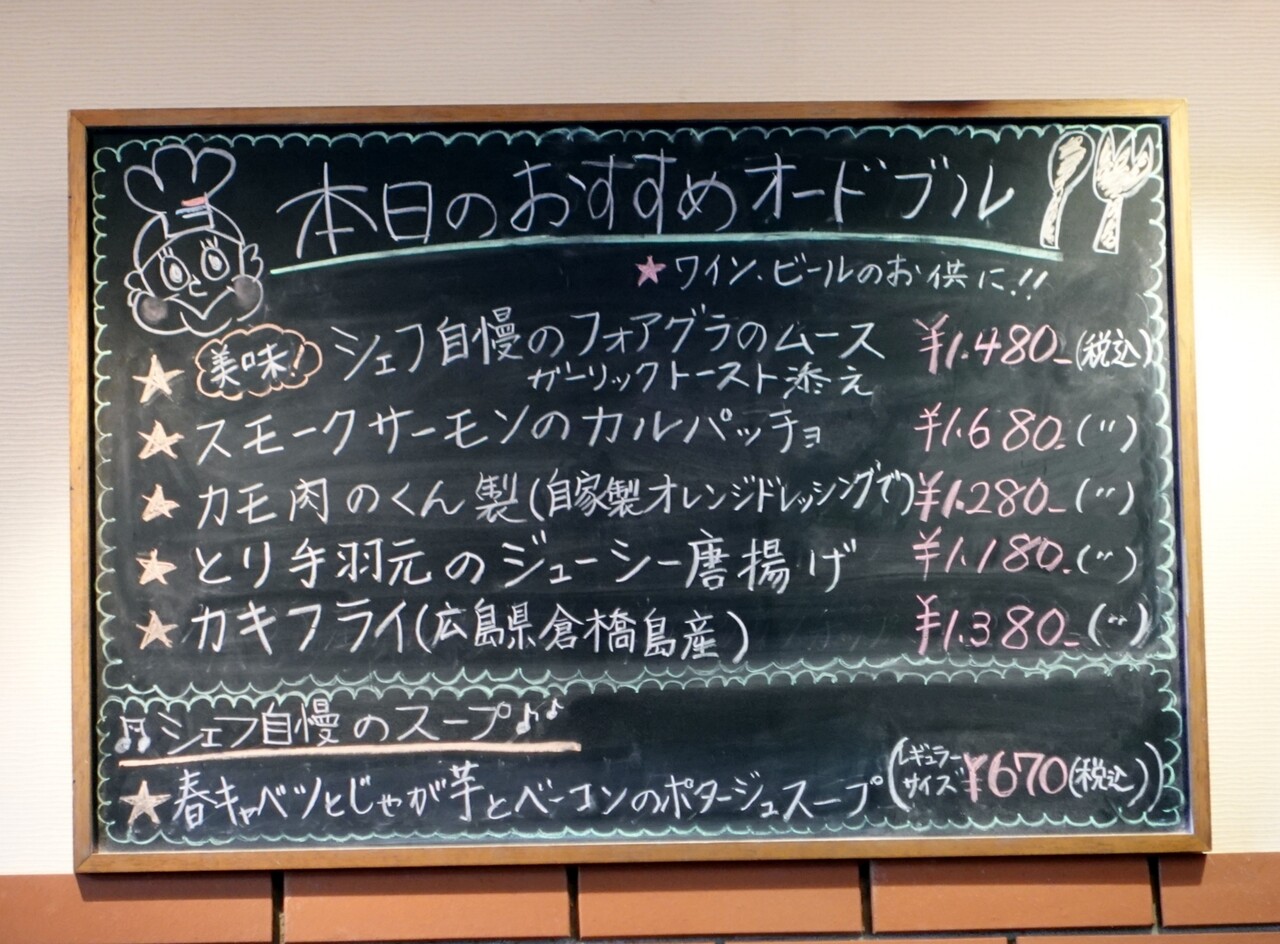 本日のおすすめオードブル
★ワイン、ビールのお供に!!
★ 美味! シェフ自慢のフォアグラのムース ¥1.480-(税込)
ガーリックトースト添え
★ スモークサーモンのカルパッチョ ¥1.680-(〃)
★ カモ肉のくん製(自家製オレンジドレッシングで) ¥1.280-(〃)
★ とり手羽元のジューシー唐揚げ ¥1.180-(〃)
★ カキフライ(広島県倉橋島産) ¥1.380-(〃)
♫シェフ自慢のスープ♪♪
★春キャベツとじゃが芋とベーコンのポタージュスープ(レギュラーサイズ ¥670(税込))